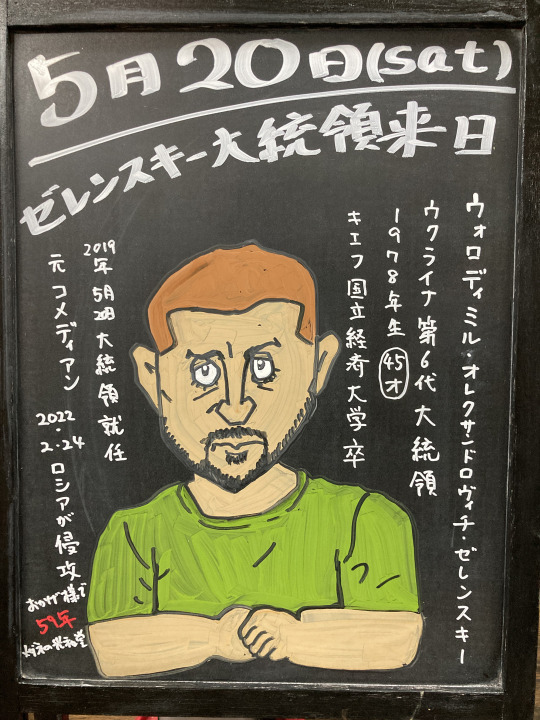 5月20日(sat)
ゼレンスキー大統領来日
ウォロディミル・オレクサンドロヴィチ・ゼレンスキー
ウクライナ第6代大統領
1978年生 45才
キエフ国立経済大学卒
2019年5月20日大統領就任
元コメディアン 2022・2・24 ロシアが侵攻
おかげ様で
59年